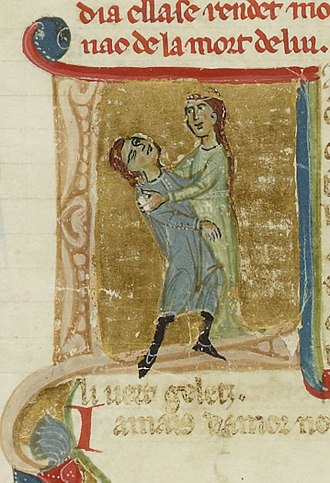 dia ella se rendet mo
nao de la mort de lui.
li uerns gelatz.
I amais damor no